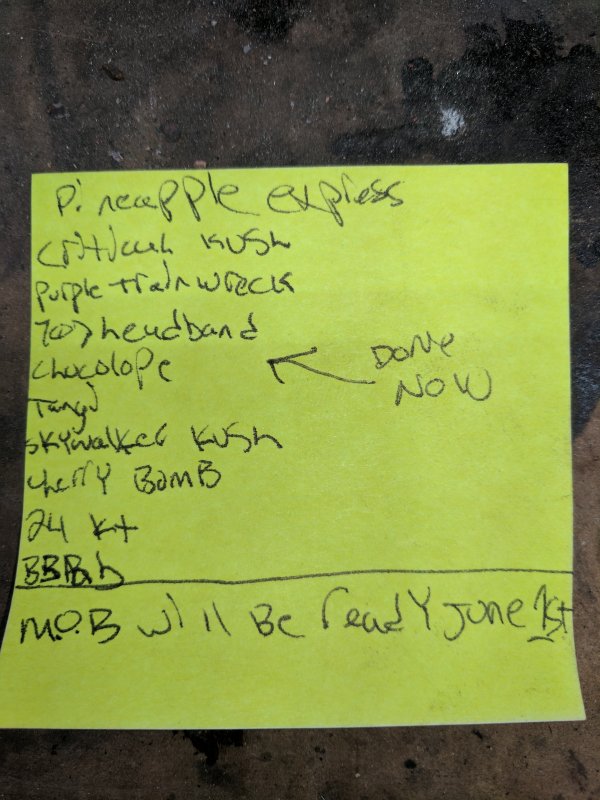 Pineapple express
critical kush
purple trainwreck
707 headband
chocolope
DONE
NOW
Tangi
skywalker kush
cherry BomB
24 kt
M.O.B will Be ready June 1st